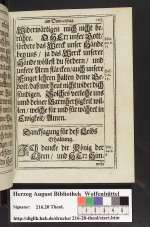 am Donnerstag. 105
Widerwärtigen mich nicht be-
rühre. O HErr unser Gott
fördere das Werck unser Hände
bey uns / ja das Werck unserer
Hände wollest du fördern / und
unsere Arm stärcken / auch unsere
Finger lehren halten deine Ge-
bott / daß wir heut nicht wider dich
sündigen. Solches verleihe uns
umb deiner Barmhertzigkeit wil-
len / welche für und für wäret in
Ewigkeit / Amen.
Dancksagung für deß Leibs
Erhaltung.
Ich dancke dir König der
Ehren / und HErr Him-
Herzog August Bibliothek Wolfenbüttel
Signatur: 216.20 Theol.
http://diglib.hab.de/drucke/216-20-theol/start.htm